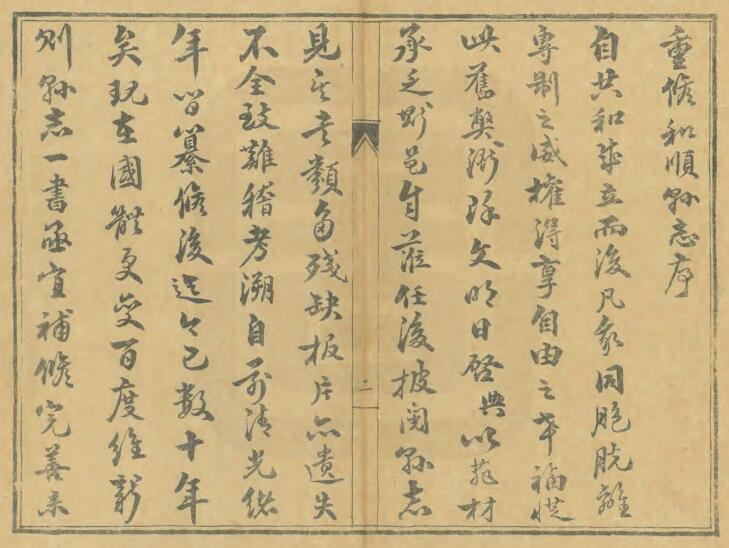 重修和順縣志序
自共和成立而後凡我同胞脫離
專制之威權得享自由之幸福從
此舊弊漸除文明日啓典以菲材
承乏斯邑自蒞任後披閱縣志
見其書類多殘缺板片亦遺失
二
不全致難稽考溯自前清光緒
年間纂修後迄今已數十年
矣現在國體更變百度維新
則縣志一書亟宜補修完善未